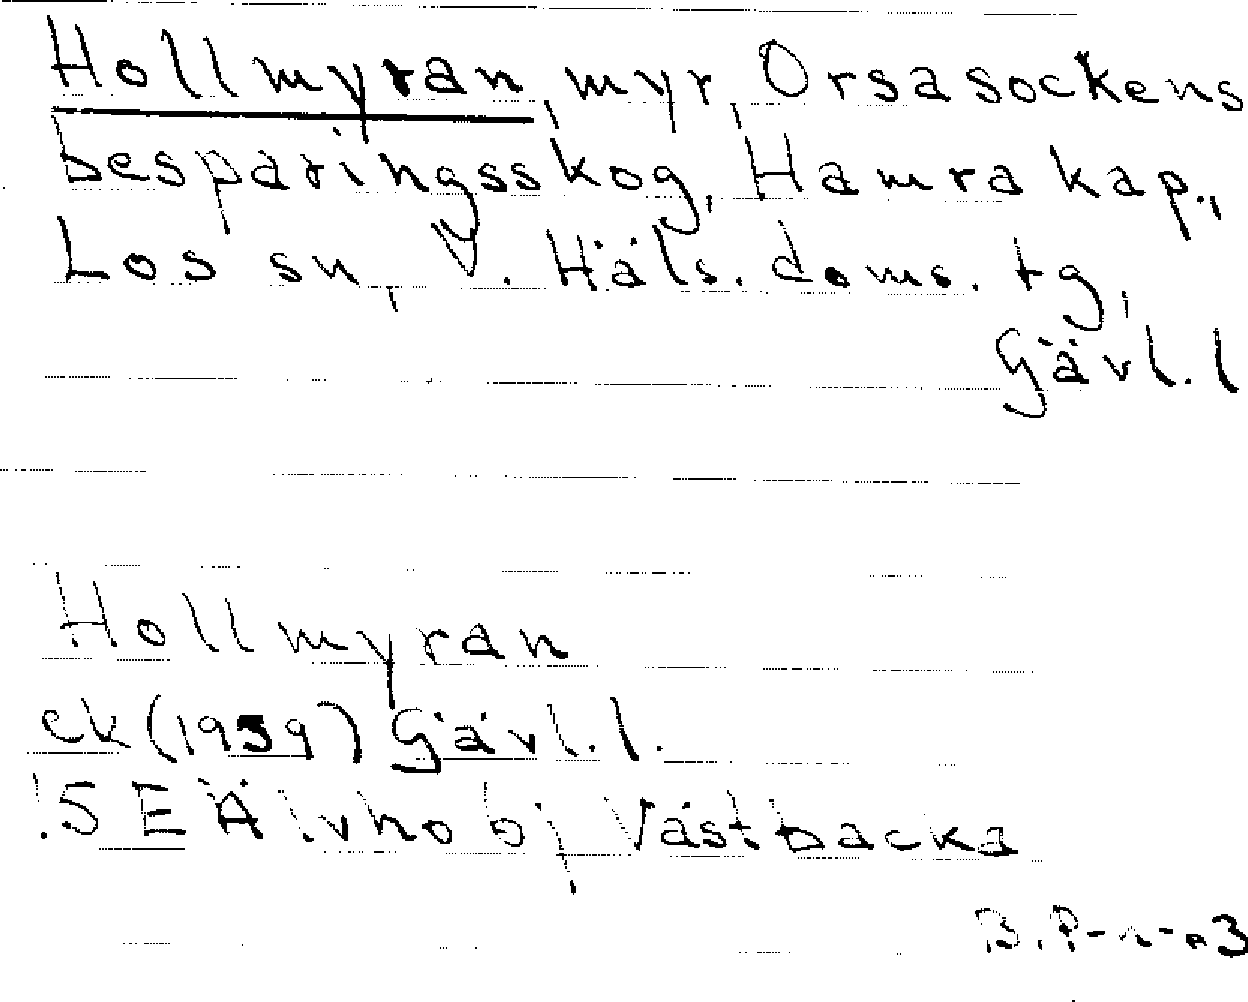 Hollmyran, myr, Orsa sockens
besparingsskog, Hamra kap.,
Los sn, V. Häls. doms. tg,
Gävl. l
Hollmyran
ek (1939) Gävl. l.
! 5 E Älvho b; Västbacka